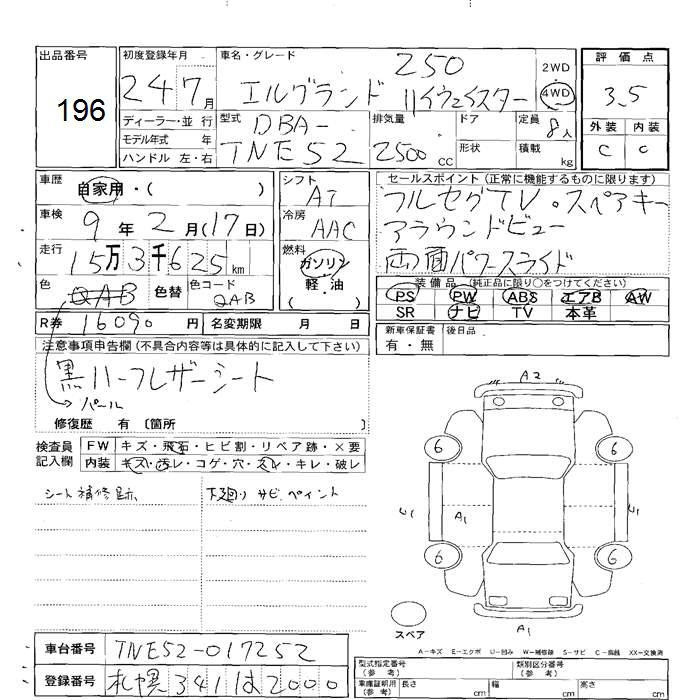 出品番号 初度登録年月 車名・グレード 評価点
196 24 7月 エルグランド 250 ハイウェイスター 2WD 4WD 3.5
ディーラー・並行 型式 排気量 ドア 定員 外装 内装
モデル年式 年 DBA- 8人 C C
ハンドル 左・右 TNE52 2500cc 形状 積載 kg
車歴 自家用・( ) シフト AT セールスポイント(正常に機能するものに限ります)
車検 9年2月(17日) 冷房 AAC フルセグTV・スペアキー
走行 15万3千625km 燃料 ガソリン 軽・油 ( ) アラウンドビュー
両面パワースライド
色 QAB 色替 色コード QAB 装備品(純正品に限り○をつけてください)
PS PW ABS エアB AW
SR ナビ TV 本革
R券 16090円 名変期限 月 日 新車保証書 有・無 後日品
注意事項申告欄(不具合内容等は具体的に記入して下さい)
黒ハーフレザーシート
パール
修復歴 有〔箇所 〕
検査員記入欄 FW キズ・飛石・ヒビ割・リペア跡・×要
内装 キズ・汚レ・コゲ・穴・スレ・キレ・破レ
シート補修跡 下廻りサビ.ペイント
A2
6 6
U1 A1 U1
6 6
スペア A1
A－キズ E－エクボ U－凹み W－補修線 S－サビ C－腐蝕 XX－交換済
車台番号 TNE52-017252 型式指定番号(参考) 類別区分番号(参考)
登録番号 札幌341は2000 車庫証明用(参考) 長さ cm 幅 cm 高さ cm